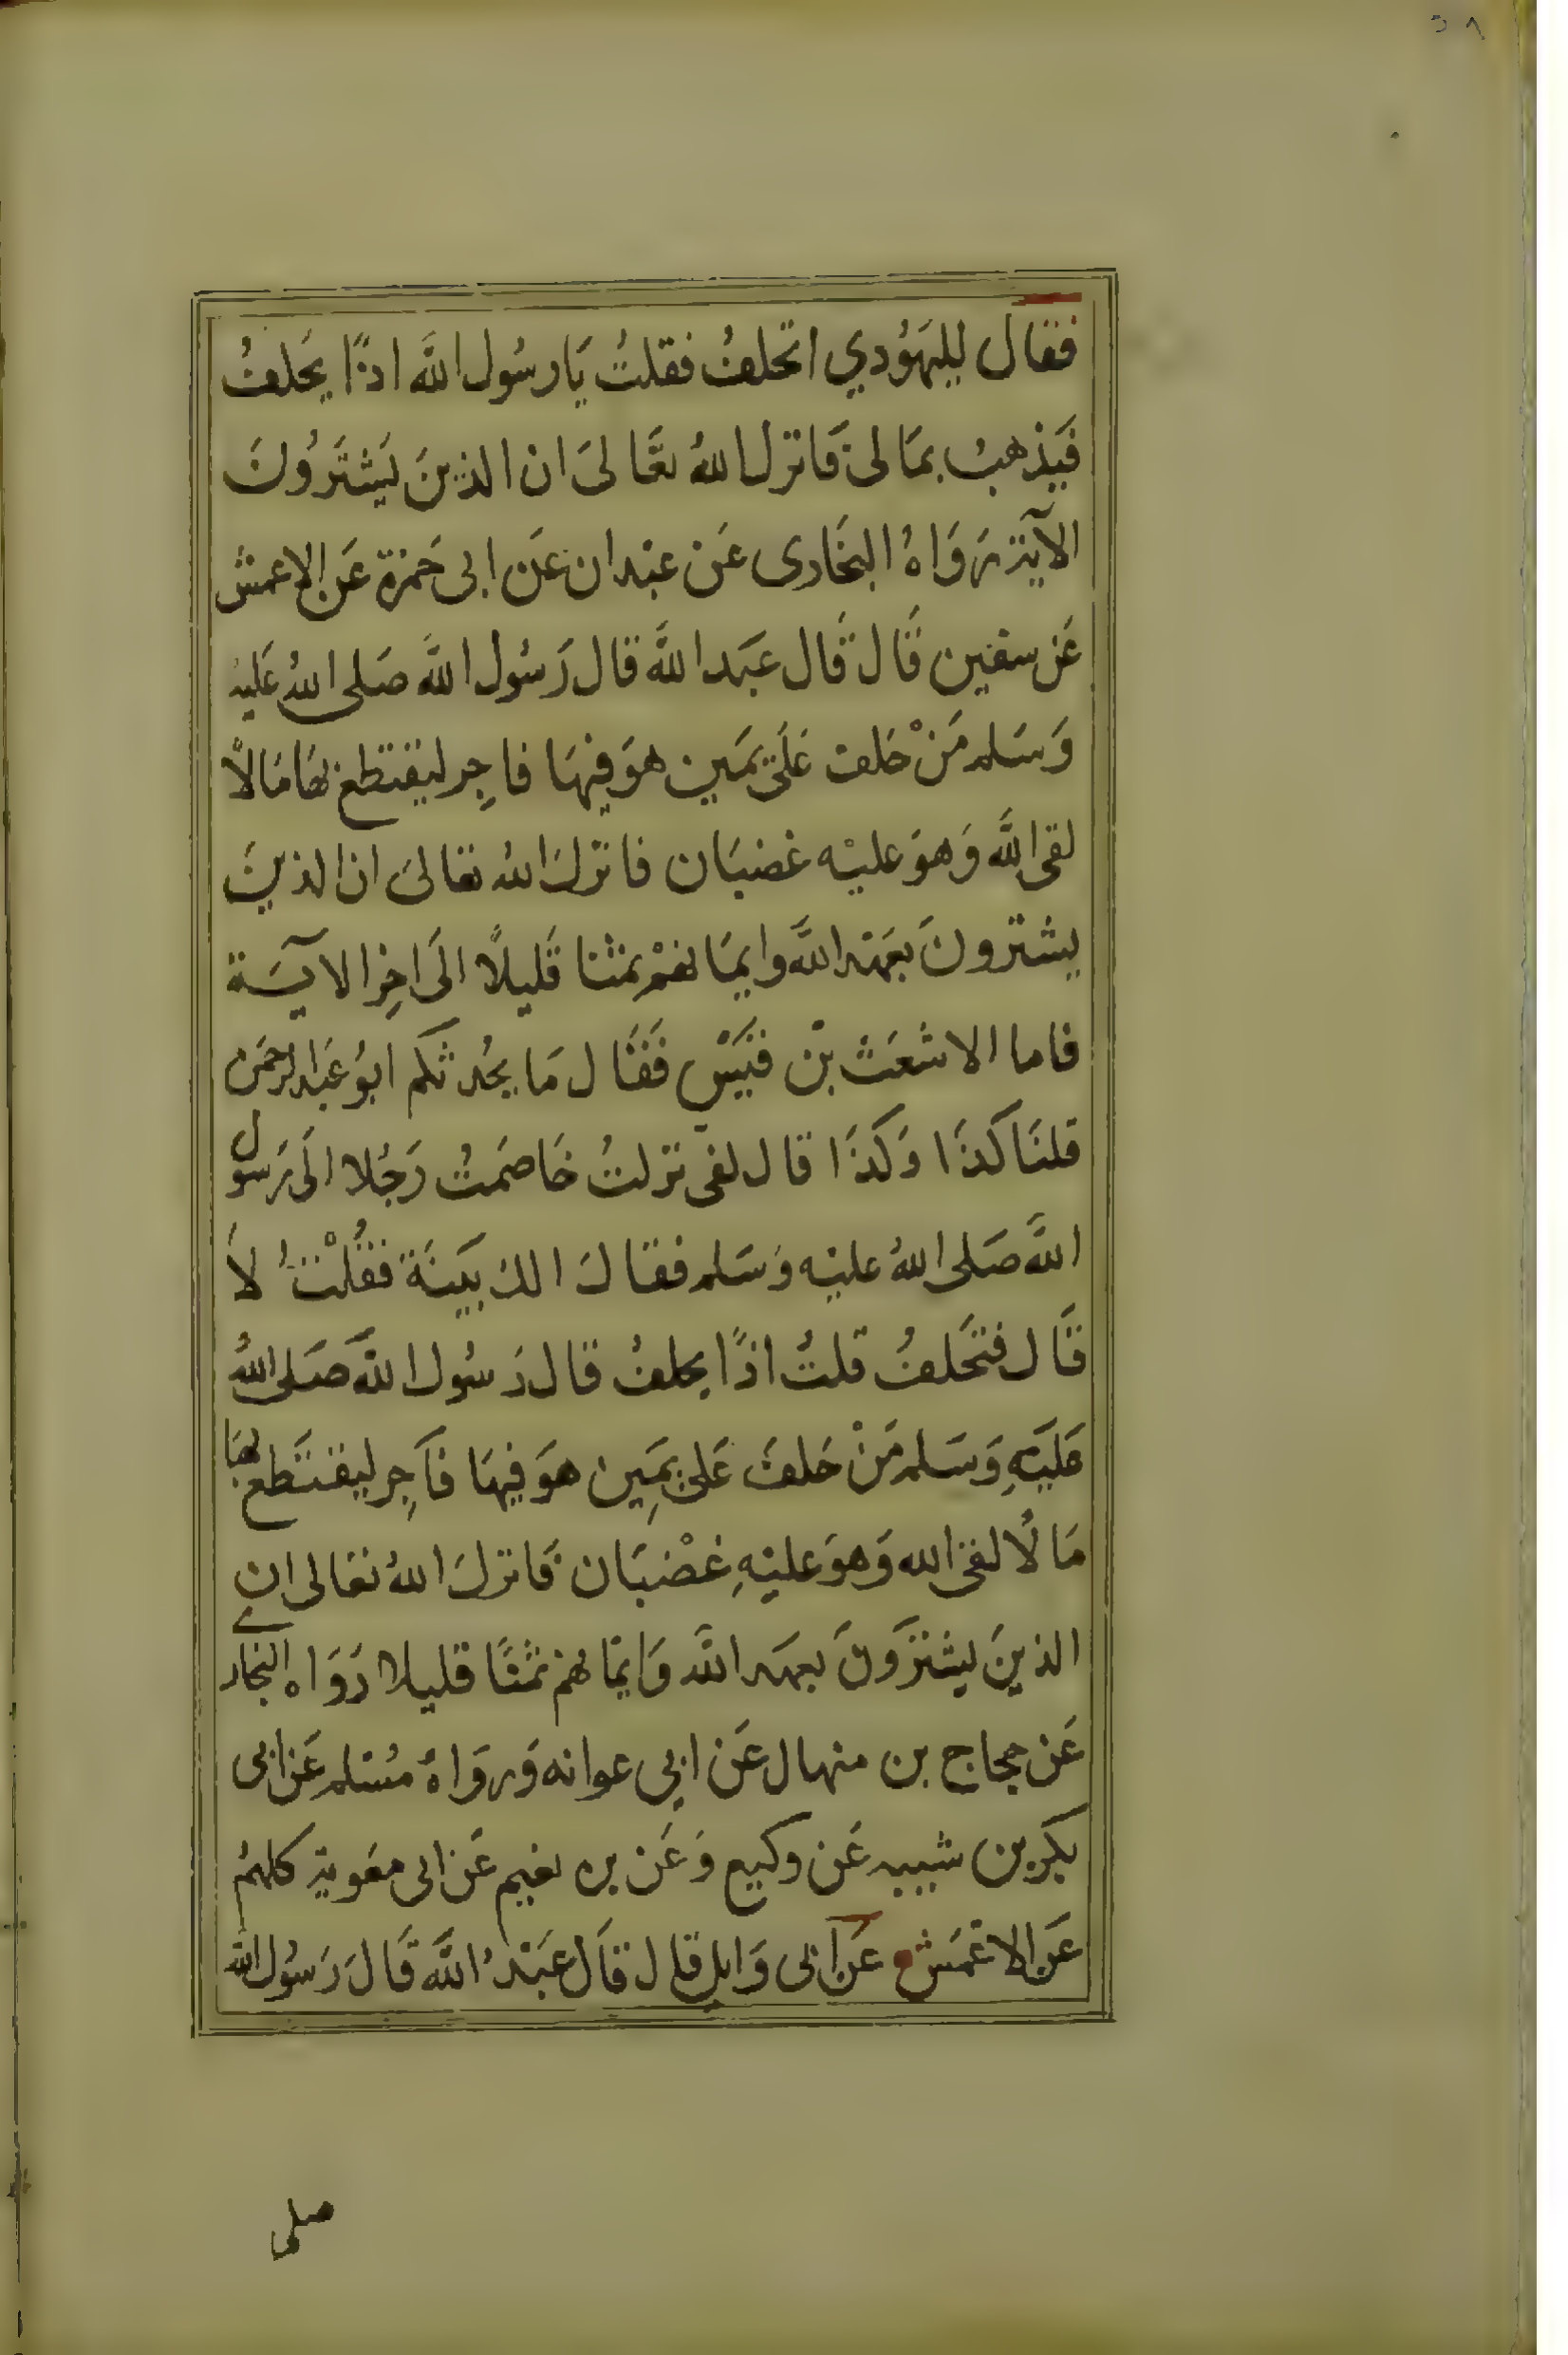 ٥٨
فقال لليهُودي اتحلفُ فقلتُ يَا رسُول اللَّه اذًا يَحلفُ
فَيذهبُ بمَالى فَانزل اللهُ تعَالىَ ان الذينَ يَشتَرُونَ
الآيَة رَوَاهُ البخَارى عَن عبْدان عَن ابى حَمزة عَن الاعمش
عَن سفين قَال قَال عبَد اللَّه قال رَسُول اللَّه صَلى اللهُ عَليْه
وَسَلم مَنْ حَلف عَلَى يَمَين هوَ فيهَا فاجِر ليَقتطع بهَا مَالاً
لقى اللَّه وَهوَ عليْه غضبَان فانزلَ اللهُ تعَالىَ ان الذينَ
يشترونَ بعَهْد اللَّه وايمَانهمْ ثمنا قَليلاً الَى اخِر الآيَة
فاما الاشعَث بْن قيَيْس فَقَال مَا يحُدثكم ابوُ عَبد الرحمَن
قلنَا كذَا وَكذَا قال لفى نزلتُ خَاصَمتُ رَجُلا الَى رَسول
اللَّه صَلى اللهُ عليْه وَسَلم فقالَ الك بَينَة فقُلْتُ لاَ
قَال فتَحَلفُ قلتُ اذًا يحلفُ قال رَسُول اللَّه صَلى اللهُ
عَليَهِ وَسَلم مَنْ حَلفَ عَلىَ يمَِين هوَ فيهَا فَاجِر ليقتَطع بهَا
مَالًا لقى الله وَهوَ عليْهِ غضْبَان فَانزلَ اللهُ تعَالى ان
الذينَ يشترَونَ بعهَد اللَّه وَايمَانهمْ ثمنًا قليلا رَوَاه البخارى
عَن حجاج بن منهال عَن ابي عوانه وَروَاهُ مُسْلم عَن ابى
بكر بن شيبه عَن وكيع وَعَن بره نعيم عَن ابى معَوية كلهمُ
عَن الاعْمَش عَن ابى وَايل قال قاَل عَبْدُ اللَّه قَالَ رَسُول الله
صلى